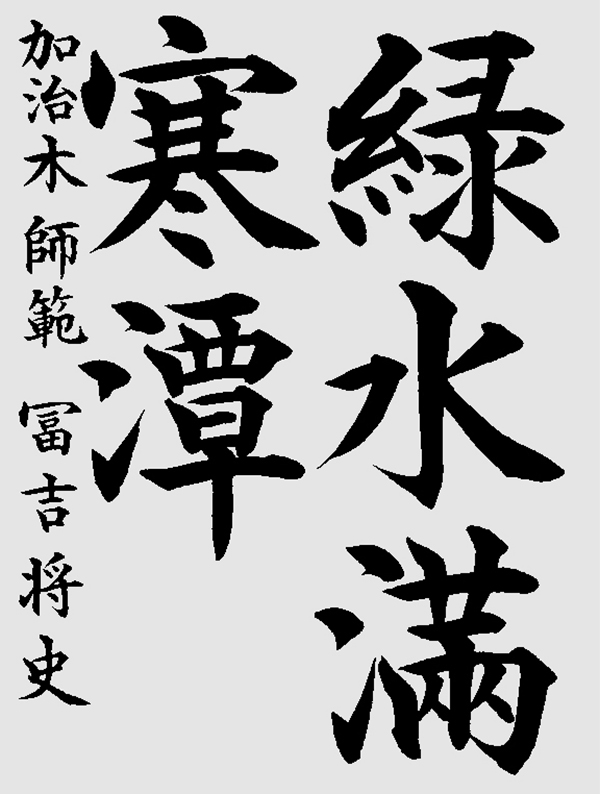 緑水満
寒潭
加治木 師範 冨吉将史